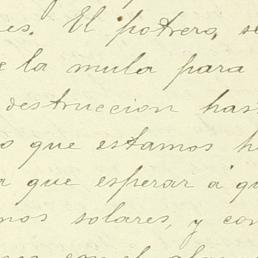 es. El potrero, se
e la mula para
destruccion has
o que estamos h
a que esperar á qu
mos solares, y con